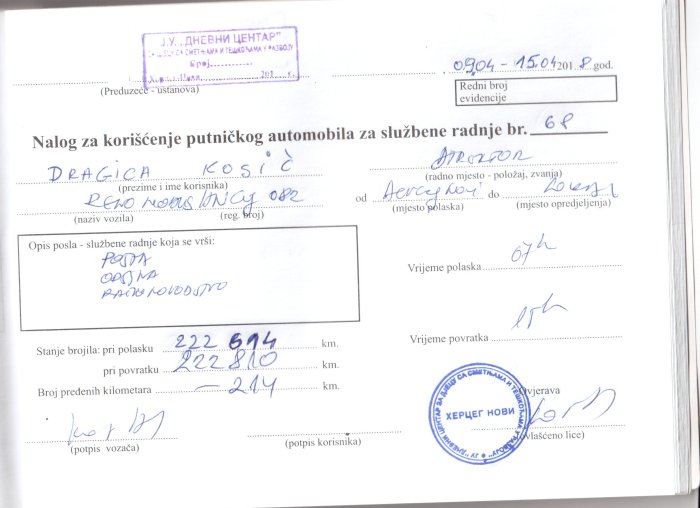 Ј.У. „ДНЕВНИ ЦЕНТАР"
ЗА ДЈЕЦУ СА СМЕТЊАМА И ТЕШКОЋАМА У РАЗВОЈУ
Број
201 г.
(Preduzeće - ustanova)
09.04 - 15.04 2018 god.
Redni broj
evidencije
Nalog za korišćenje putničkog automobila za službene radnje br. 68
DRAGICA KOSIĆ
(prezime i ime korisnika)
(radno mjesto - položaj, zvanja)
082
(naziv vozila) (reg. broj)
od Херцег Нови do
(mjesto polaska) (mjesto opredjeljenja)
Opis posla - službene radnje koja se vrši:
POŠTA
OPŠTINA
RAČUNOVODSTVO
Vrijeme polaska 07h
Vrijeme povratka 15h
Stanje brojila: pri polasku 222 594 km.
pri povratku 222 810 km.
Broj pređenih kilometara - 214 km.
(potpis vozača)
(potpis korisnika)
Ovjerava
(ovlašćeno lice)
ЈУ "ДНЕВНИ ЦЕНТАР ЗА ДЈЕЦУ СА СМЕТЊАМА И ТЕШКОЋАМА У РАЗВОЈУ"
ХЕРЦЕГ НОВИ